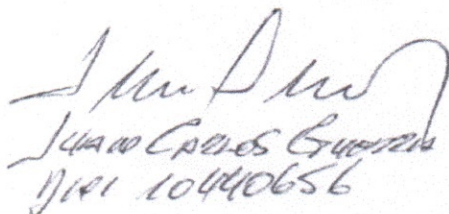 Juan Carlos Guerra
DNI 10440656